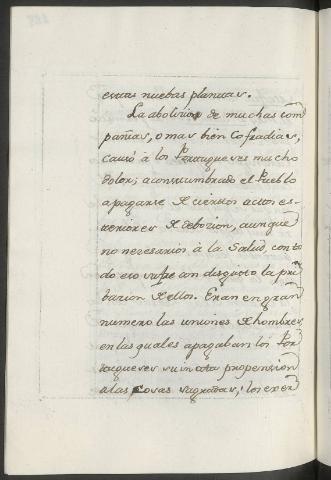 estas nuebas plantas.
La abolicion de muchas com
pañias, o mas bien Cofradias,
causò à los Portugueses mucho
dolor; acostumbrado el Pueblo
a pagarse de ciertos actos es-
teriores de debozion, aunque
no nezesarios à la Salud, con to
do eso sufre con disgusto la pri
bazion de ellos. Eran en gran
numero las uniones de hombres,
en las quales apagaban los Por
tugueses su innata propension
a las cosas sagradas, los exer